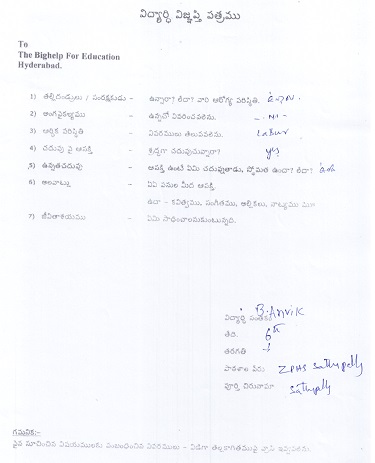 విద్యార్థి విజ్ఞప్తి పత్రము
To
The Bighelp For Education
Hyderabad.
1) తల్లిదండ్రులు / సంరక్షకుడు - ఉన్నారా? లేదా? వారి ఆరోగ్య పరిస్థితి.
2) అంగవైకల్యము - ఉన్నచో వివరించవలెను. - Nil -
3) ఆర్థిక పరిస్థితి - వివరములు తెలుపవలెను. Labur
4) చదువు పై ఆసక్తి - శ్రద్ధగా చదువుచున్నారా? yes
5) ఉన్నతచదువు - ఆసక్తి ఉంటే ఏమి చదువుతాడు, స్తోమత ఉందా? లేదా?
6) అలవాట్లు - ఏఏ పనుల మీద ఆసక్తి.
ఉదా - కవిత్వము, సంగీతము, అల్లికలు, నాట్యము
7) జీవితాశయము - ఏమి సాధించాలనుకుంటున్నది.
విద్యార్థి సంతకం B.Anvik
తేది. 6th
తరగతి
పాఠశాల పేరు ZPHS Sathupally
పూర్తి చిరునామా Sathupally
గమనిక:-
పైన సూచించిన విషయములకు సంబంధించిన వివరములు - విడిగా తెల్లకాగితముపై వ్రాసి ఇవ్వవలెను.